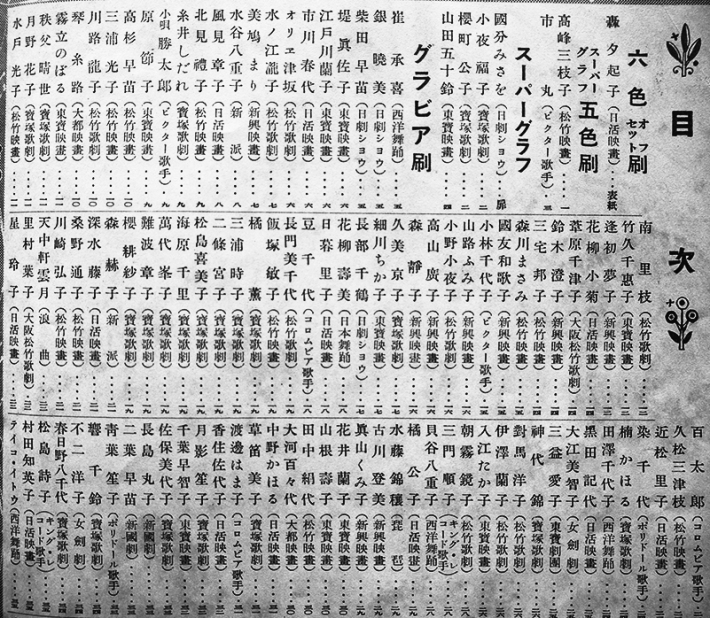 目次
六色オフセット刷
轟夕起子(日活映畫)‥表紙
スーパーグラフ五色刷
高峰三枝子(松竹映畫)‥一
市丸(ビクター歌手)‥三
スーパーグラフ
國分みさを(日劇ショウ)‥扉
小夜福子(寶塚歌劇)
櫻町公子(松竹映畫)
山田五十鈴(東寶映畫)‥四
グラビア刷
崔承喜(西洋舞踊)
銀曉美(日劇ショウ)
柴田早苗(日劇ショウ)
堤眞佐子(東寶映畫)
江戸川蘭子(東寶映畫)
市川春代(日活映畫)
オリヱ津坂(松竹歌劇)
水ノ江瀧子(松竹歌劇)
美鳩まり(新興映畫)
水谷八重子(新派)
風見章子(日活映畫)
北見禮子(松竹映畫)
糸井しだれ(寶塚歌劇)
小唄勝太郎(ビクター歌手)
原節子(東寶映畫)
高杉早苗(松竹映畫)
三浦光子(松竹映畫)
川路龍子(松竹歌劇)
琴糸路(大都映畫)
霧立のぼる(東寶映畫)
秩父晴世(寶塚歌劇)
月野花子(寶塚歌劇)
水戸光子(松竹映畫)
南里枝(松竹歌劇)
竹久千惠子(東寶映畫)
逢初夢子(新興映畫)
花柳小菊(日活映畫)
葦原千津子(大阪松竹歌劇)
鈴木澄子(新興映畫)
三宅邦子(松竹映畫)
森川まさみ(新興映畫)
國友和歌子(新興映畫)
小林千代子(ビクター歌手)
山路ふみ子(新興映畫)
小野小夜子(松竹歌劇)
高山廣子(新興映畫)
森靜子(新興映畫)
久美京子(寶塚歌劇)
細川ちか子(東寶映畫)
長部千鶴(日劇ショウ)
花柳壽美(日本舞踊)
日暮里子(日活映畫)
豆千代(コロムビア歌手)
長門美千代(松竹歌劇)
飯塚敏子(松竹映畫)
橘薫(寶塚歌劇)
三浦時子(寶塚歌劇)
二條宮子(寶塚歌劇)
松島喜美子(寶塚歌劇)
海原千里(寶塚歌劇)
萬代峯子(寶塚歌劇)
難波章子(寶塚歌劇)
櫻緋紗子(寶塚歌劇)
森赫子(新派)
深水藤子(日活映畫)
桑野通子(松竹映畫)
川崎弘子(松竹映畫)
天中軒雲月(浪曲)
里村葉子(大阪松竹歌劇)
星玲子(日活映畫)
百太郎(コロムビア歌手)
久松三津枝(松竹映畫)
近松里子(日活映畫)
染千代(ポリドール歌手)
楠かほる(寶塚歌劇)
田澤千代子(西洋舞踊)
黒田記代(日活映畫)
大江美智子(女劍劇)
三益愛子(東寶劇團)
神代錦(寶塚歌劇)
對馬洋子(松竹歌劇)
伊澤蘭子(寶塚歌劇)
入江たか子(東寶映畫)
朝霧鏡子(松竹歌劇)
三門順子(キングレコード歌手)
貝谷八重子(西洋舞踊)
橘公子(日活映畫)
水藤錦穰(琵琶)
古川登美(新興映畫)
眞山くみ子(新興映畫)
花井蘭子(東寶映畫)
山根壽子(東寶映畫)
田中絹代(松竹映畫)
大河百々代(大都映畫)
中野かほる(松竹映畫)
草笛美子(寶塚歌劇)
渡邊はま子(コロムビア歌手)
香住佐代子(日活映畫)
月影笙子(寶塚歌劇)
千葉早智子(東寶映畫)
佐保美代子(寶塚歌劇)
長島丸子(新國劇)
二葉早苗(新國劇)
青葉笙子(ポリドール歌手)
響千鈴(寶塚歌劇)
不二洋子(女劍劇)
春日野八千代(寶塚歌劇)
松島詩子(キングレコード歌手)
村田知英子(日活映畫)
テイコ・イトウ(西洋舞踊)